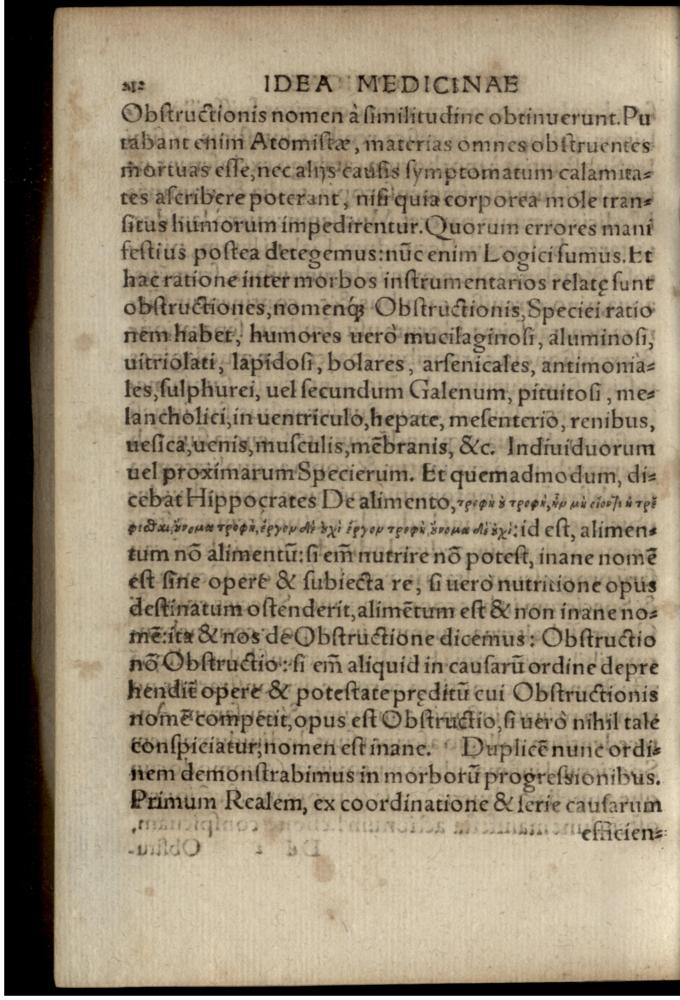 212 IDEA MEDICINAE
Obſtructionis nomen à ſimilitudine obtinuerunt. Pu
tabant enim Atomiſtæ, materias omnes obſtruentes
mortuas eſſe, nec alijs cauſis ſymptomatum calamita-
tes aſcribere poterant, niſi quia corporea mole tran-
ſitus humorum impedirentur. Quorum errores mani
feſtius poſtea detegemus: nũc enim Logici ſumus. Et
hac ratione inter morbos inſtrumentarios relatę ſunt
obſtructiones, nomenq́; Obſtructionis, Speciei ratio
nem habet, humores uerò mucilaginoſi, aluminoſi,
uitriolati, lapidoſi, bolares, arſenicales, antimonia-
les, ſulphurei, uel ſecundum Galenum, pituitoſi, me-
lancholici, in uentriculo, hepate, meſenterio, renibus,
ueſica, uenis, muſculis, mẽbranis, &c. Indiuiduorum
uel proximarum Specierum. Et quemadmodum, di-
cebat Hippocrates De alimento, τροφὴ ὀ τροφὴ, ἢν μὴ
τροφὴ, ἔργον δὲ ὀχὶ ἔργον τροφὴ, ὀνομα δὲ ὀχί: id eſt, alimen-
tum nõ alimentũ: ſi em̃ nutrire nõ poteſt, inane nomẽ
eſt ſine opere & ſubiecta re, ſi uero nutritione opus
deſtinatum oſtenderit, alimẽtum eſt & non inane no-
mẽ: ita & nos de Obſtructione dicemus: Obſtructio
nõ Obſtructio: ſi em̃ aliquid in cauſarũ ordine depre
hendit̃ opere & poteſtate pręditũ cui Obſtructionis
nomẽ competit, opus eſt Obſtructio, ſi uerò nihil tale
conſpiciatur, nomen eſt inane. Duplicẽ nunc ordi-
nem demonſtrabimus in morborũ progreſsionibus.
Primum Realem, ex coordinatione & ſerie cauſarum
efficien-